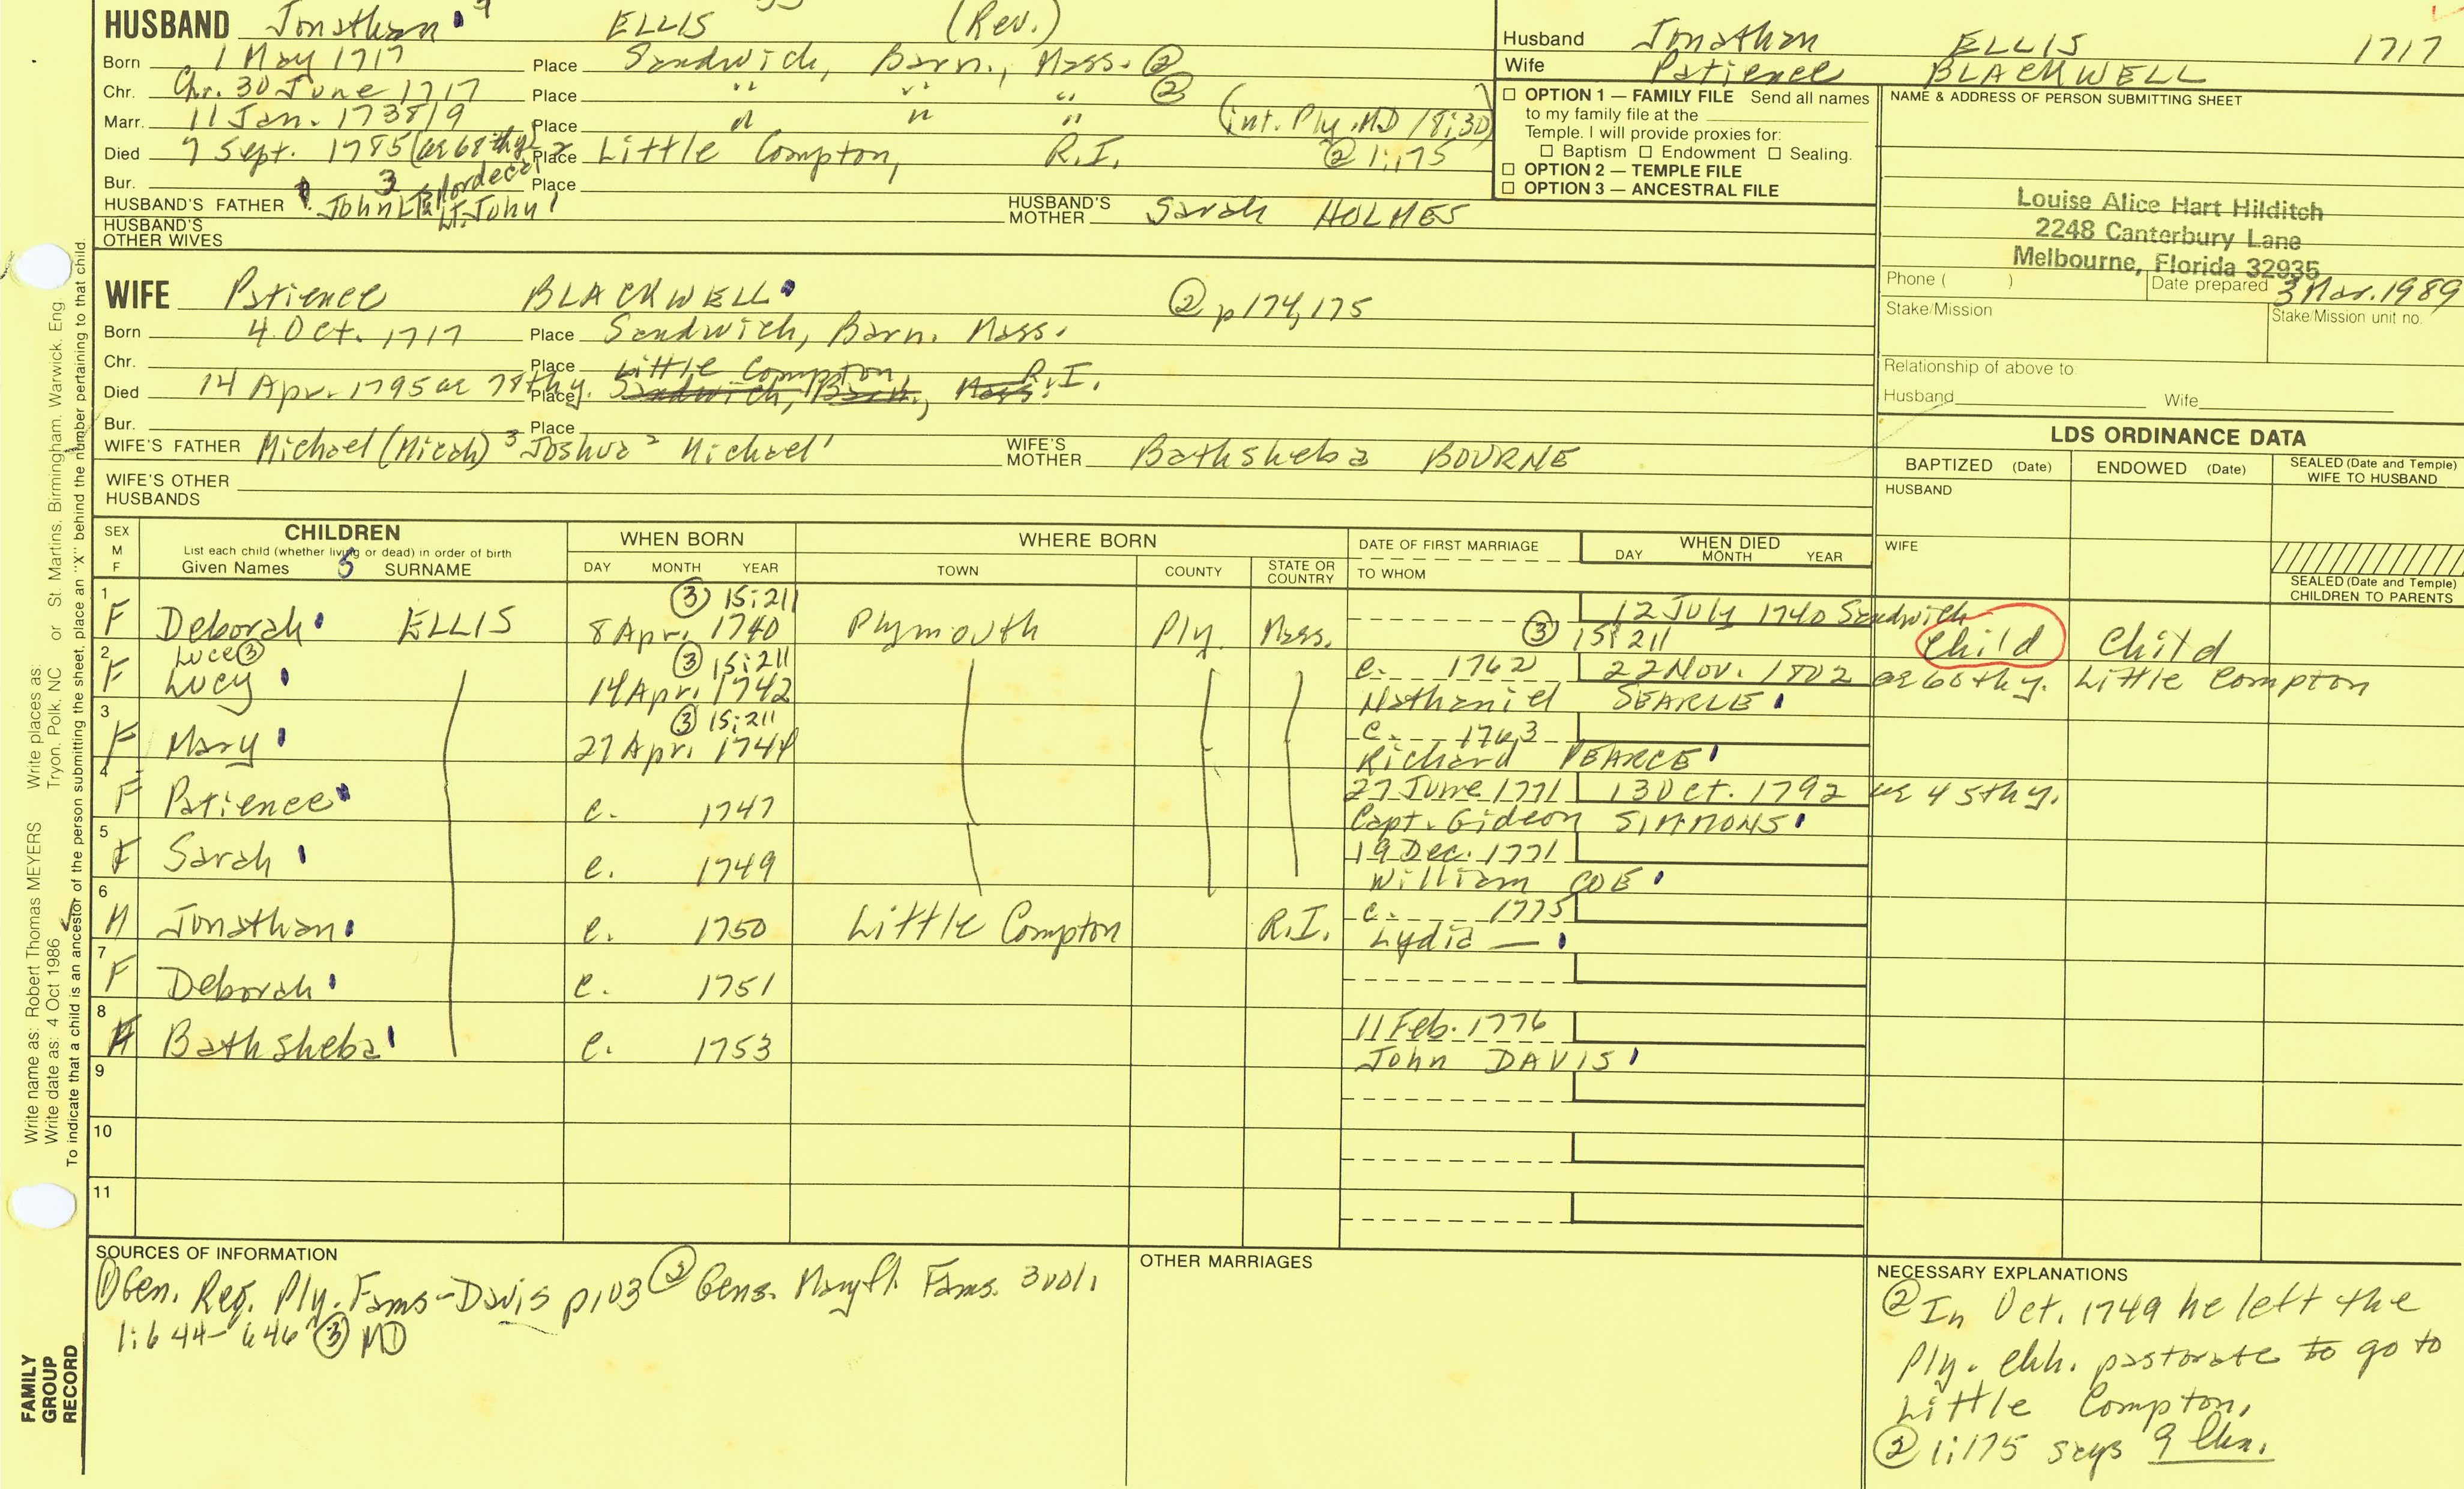 HUSBAND Jonathan 4 ELLIS (Rev.)
Born 1 May 1717 Place Sandwich, Barn., Mass. ②
Chr. Chr. 30 June 1717 Place " " " ②
Marr. 11 Jan. 1738/9 Place " " " (int. Ply. MD 18:30)
Died 7 Sept. 1785 (ae 68thy) Place Little Compton, R.I. ② 1:175
Bur. Place
HUSBAND'S FATHER John 3 Mordecai 2 Lt. John 1 HUSBAND'S MOTHER Sarah HOLMES
HUSBAND'S OTHER WIVES
Husband Jonathan ELLIS 1717
Wife Patience BLACKWELL
☐ OPTION 1 — FAMILY FILE Send all names
to my family file at the
Temple. I will provide proxies for:
☐ Baptism ☐ Endowment ☐ Sealing.
☐ OPTION 2 — TEMPLE FILE
☐ OPTION 3 — ANCESTRAL FILE
NAME & ADDRESS OF PERSON SUBMITTING SHEET
Louise Alice Hart Hilditch
2248 Canterbury Lane
Melbourne, Florida 32935
Phone ( ) Date prepared 3 Mar. 1989
Stake/Mission Stake/Mission unit no.
Relationship of above to
Husband Wife
WIFE Patience BLACKWELL ② p 174, 175
Born 4 Oct. 1717 Place Sandwich, Barn. Mass.
Chr. Place Little Compton, R.I.
Died 14 Apr. 1795 ae 78thy. Place Sandwich, Barn., Mass.
Bur. Place
WIFE'S FATHER Michael (Micah) 3 Joshua 2 Michael 1 WIFE'S MOTHER Bathsheba BOURNE
WIFE'S OTHER HUSBANDS
LDS ORDINANCE DATA
BAPTIZED (Date) ENDOWED (Date) SEALED (Date and Temple) WIFE TO HUSBAND
HUSBAND
WIFE
SEALED (Date and Temple) CHILDREN TO PARENTS
SEX M F CHILDREN WHEN BORN WHERE BORN DATE OF FIRST MARRIAGE WHEN DIED
List each child (whether living or dead) in order of birth
Given Names 5 SURNAME DAY MONTH YEAR TOWN COUNTY STATE OR COUNTRY TO WHOM DAY MONTH YEAR
③ 15:211
1 F Deborah ELLIS 8 Apr. 1740 Plymouth Ply. Mass. 12 July 1740 Sandwich
③ 15:211 Child Child
Luce ③ ③ 15:211
2 F Lucy 14 Apr. 1742 c. 1762 22 Nov. 1802 ae 60thy. Little Compton
Nathaniel SEARLE
③ 15:211
3 F Mary 27 Apr. 1744 c. 1763
Richard PEARCE
4 F Patience c. 1747 27 June 1771 13 Oct. 1792 ae 45thy.
Capt. Gideon SIMMONS
5 F Sarah c. 1749 19 Dec. 1771
William COE
6 M Jonathan c. 1750 Little Compton R.I. c. 1775
Lydia —
7 F Deborah c. 1751
8 F Bathsheba c. 1753 11 Feb. 1776
John DAVIS
9
10
11
SOURCES OF INFORMATION
① Gen. Reg. Ply. Fams - Davis p 103 ② Gens. Mayfl. Fams. 3 vol.
1:644-646 ③ MD
OTHER MARRIAGES
NECESSARY EXPLANATIONS
② In Oct. 1749 he left the
Ply. chh. pastorate to go to
Little Compton.
② 1:175 says 9 chn.
Write name as: Robert Thomas MEYERS Write places as: Tryon, Polk, NC or St Martins, Birmingham, Warwick, Eng
Write date as: 4 Oct 1986
To indicate that a child is an ancestor of the person submitting the sheet, place an "X" behind the number pertaining to that child.
FAMILY
GROUP
RECORD